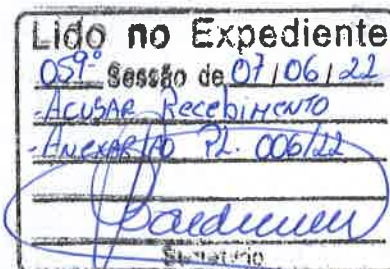 Lido no Expediente
059ª Sessão de 07/06/22
-Acusar Recebimento
-Anexar ao PL. 006/22
Secretário